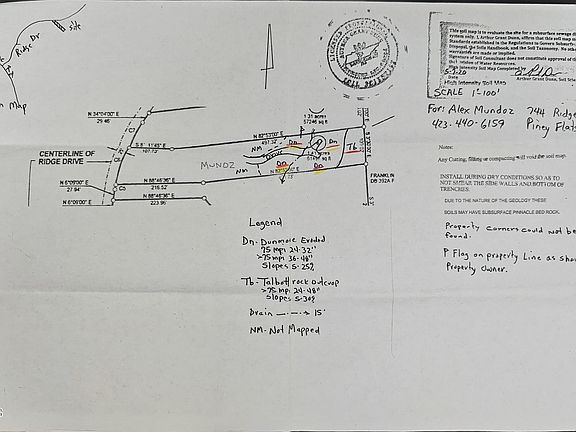 Ridge Dr
Site
n Map
This soil map is to evaluate the site for a subsurface sewage
system only. I, Arthur Grant Dunn, affirm that this soil map
Standards established in the Regulations to Govern Subsurface
Disposal, the Soils Handbook, and the Soil Taxonomy. No other
warranties are made or implied.
Signature of Soil Consultant does not constitute approval of
of Water Resources.
High Intensity Soil Map Completed by
5-7-20
Date
Arthur Grant Dunn, Soil
High Intensity Soil Map
SCALE 1"-100'
For: Alex Mundoz 744 Ridge
423-440-6159 Piney Flats
N 34°04'00" E
29.46'
1.31 acres
57246 sq ft
N 82°53'00" E
497.32'
S 8
107.72'
CENTERLINE OF
RIDGE DRIVE
MUNDOZ
NM
NM
Dn
Dn
Dn
Dn
Tb
N 6°09'00" E
27.94'
N 88°46'36" E
216.52'
N 6°09'00" E
N 88°46'36" E
223.96'
FRANKLIN
DB 392A F
Notes:
Any Cutting, filling or compacting will void the soil map.
INSTALL DURING DRY CONDITIONS SO AS TO
NOT SMEAR THE SIDE WALLS AND BOTTOM OF
TRENCHES.
DUE TO THE NATURE OF THE GEOLOGY THESE
SOILS MAY HAVE SUBSURFACE PINNACLE BED ROCK.
Property corners could not be
found.
P Flag on property Line as show
Property owner.
Legend
Dn- Dunmore Eroded
75 mpi 24-32"
>75 mpi 36-48"
Slopes 5-25%
Tb- Talbott rock outcrop
>75 mpi 24-48"
Slopes 5-30%
Drain 15'
NM- Not Mapped